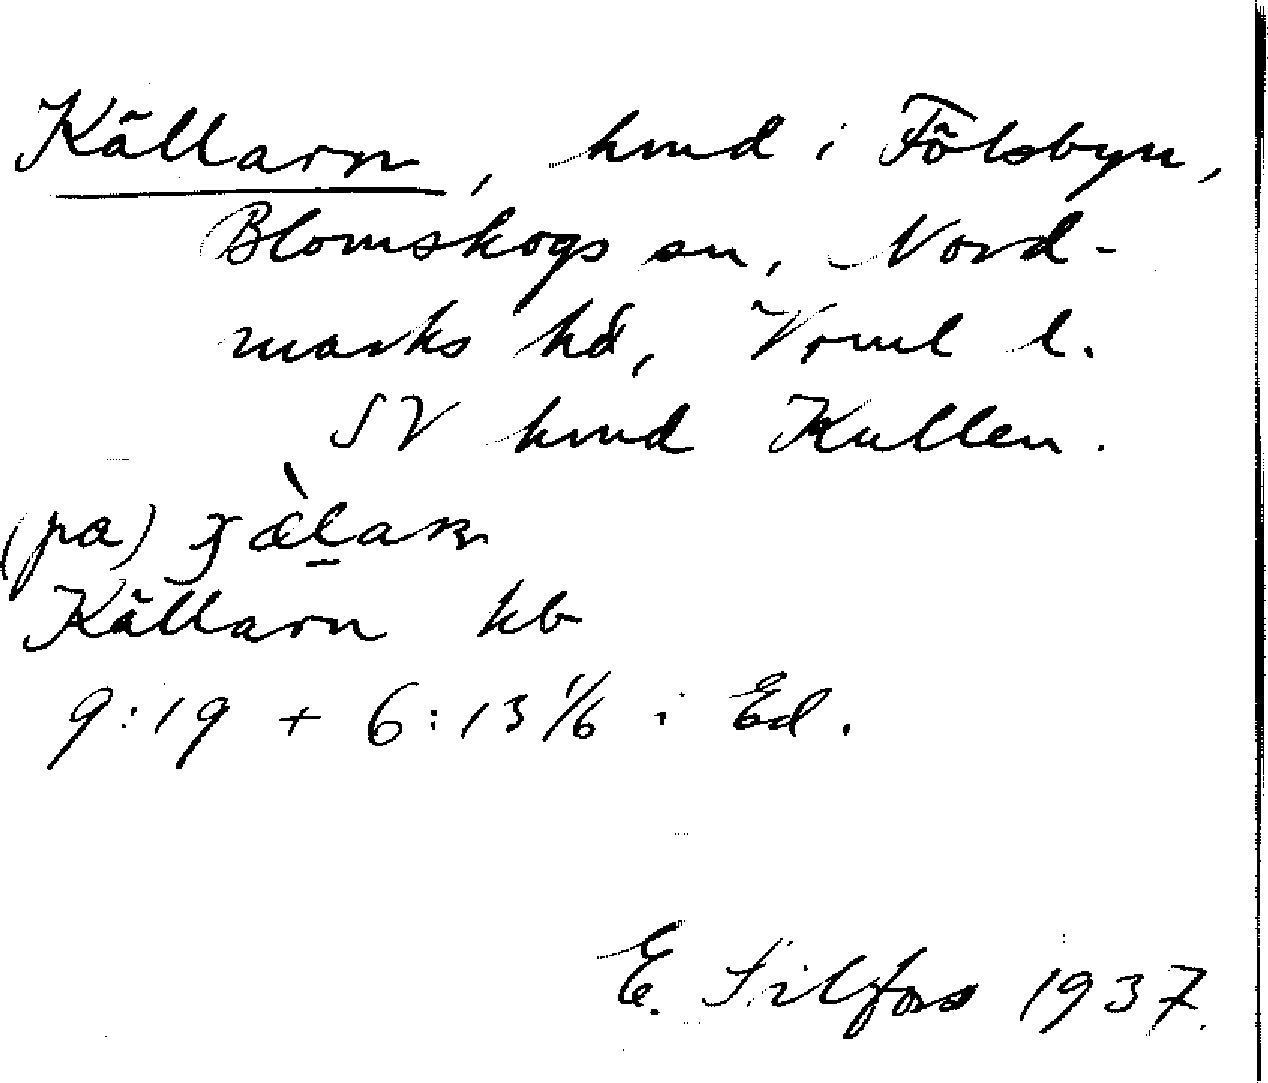 Källarn, hmd i Fölsbyn,
Blomskogs sn, Nord-
marks hd, Vrml l.
SV hmd Kullen.
(pa)
Källarn kb
9:19 + 6:13 1/6 i Ed.
E. Filfors 1937.